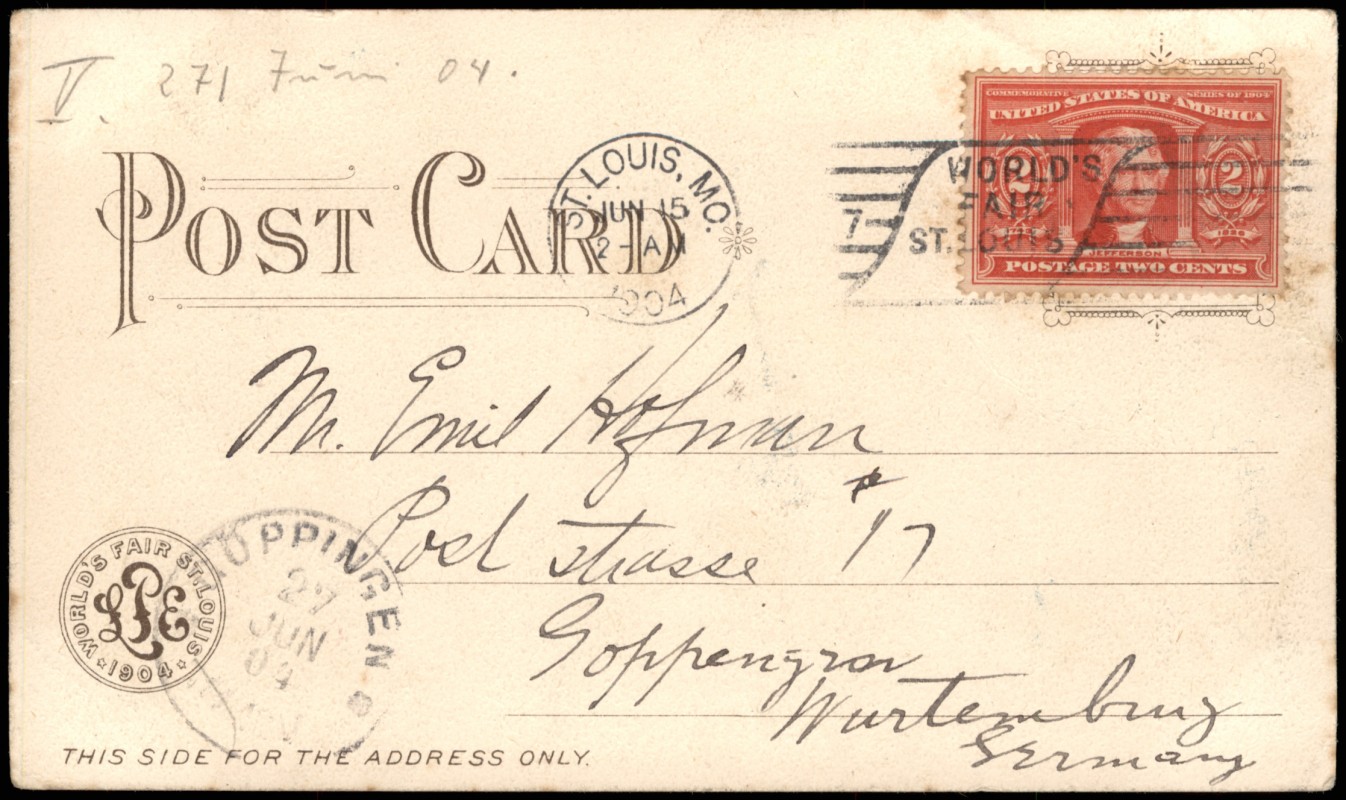 V. 271 Juni 04.
COMMEMORATIVE SERIES OF 1904
UNITED STATES OF AMERICA
2 2
1803 1904
JEFFERSON
POSTAGE TWO CENTS
POST CARD
ST. LOUIS, MO.
JUN 15
2-AM
1904
7
WORLD'S
FAIR
ST. LOUIS
Mr. Emil Hofmann
Post strasse # 17
Goppengen
Wurtemburg
Germany
WORLD'S FAIR ST. LOUIS
LPE
1904
GÖPPINGEN
27
JUN
04
THIS SIDE FOR THE ADDRESS ONLY.